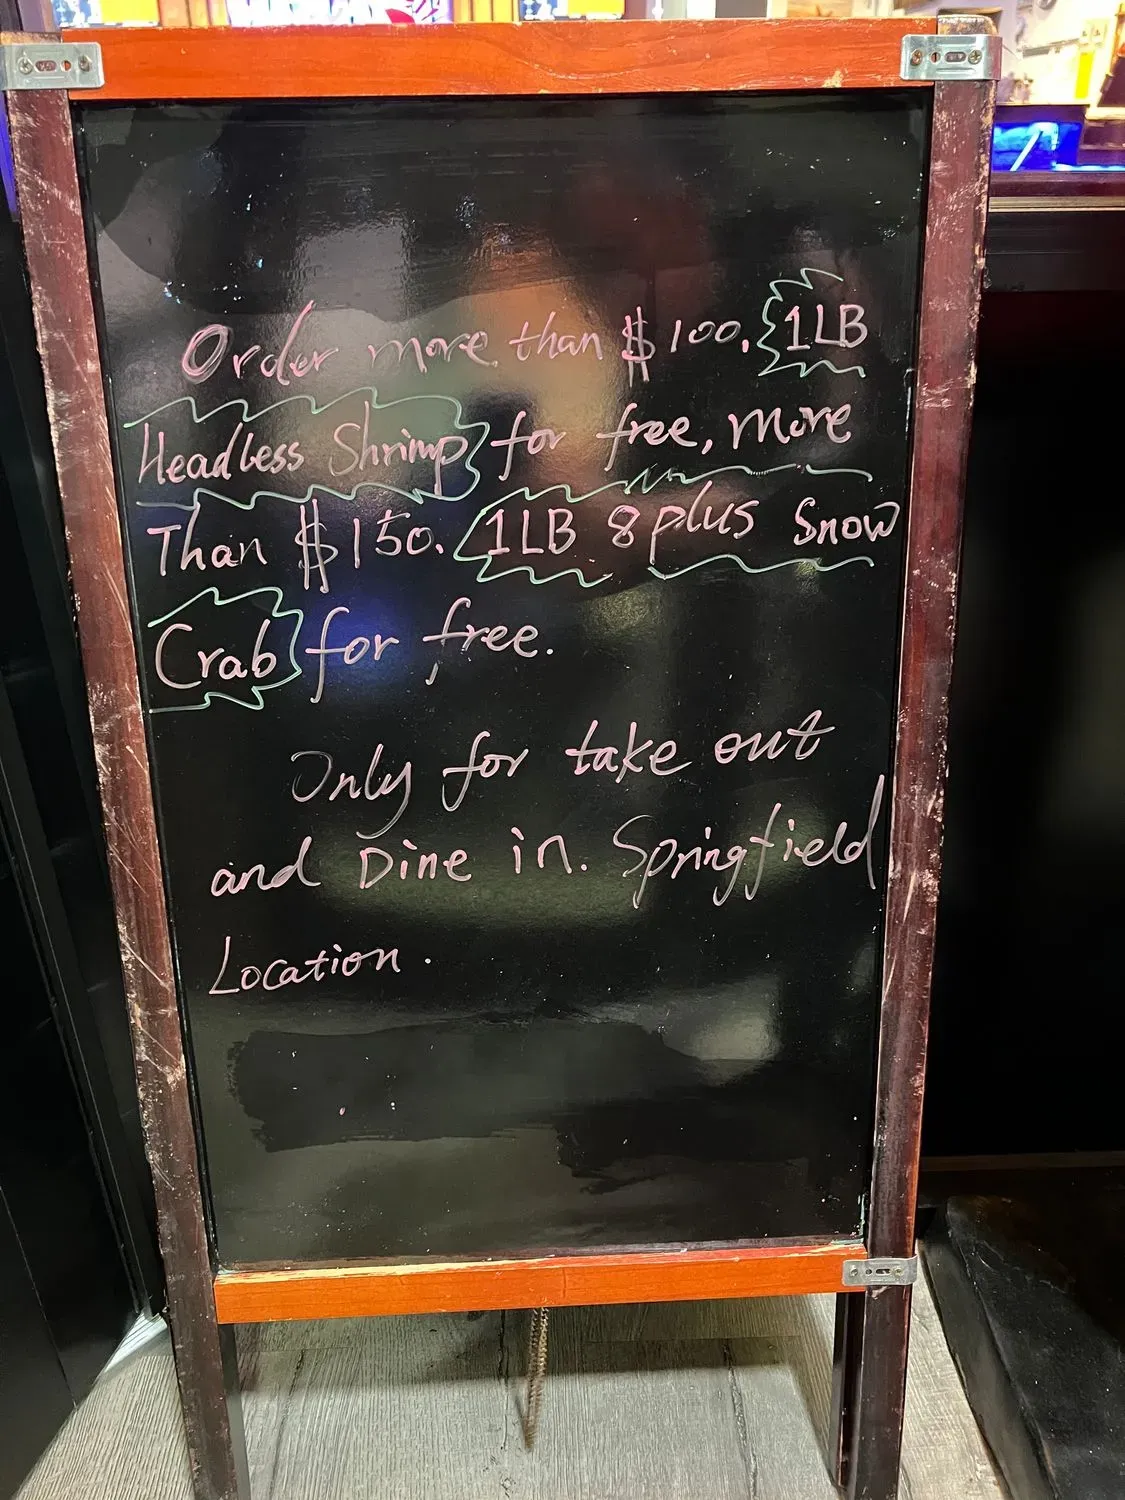 Order more than $100. 1LB
Headless Shrimp for free, more
Than $150. 1LB 8plus Snow
Crab for free.
Only for take out
and Dine in. Springfield
Location.